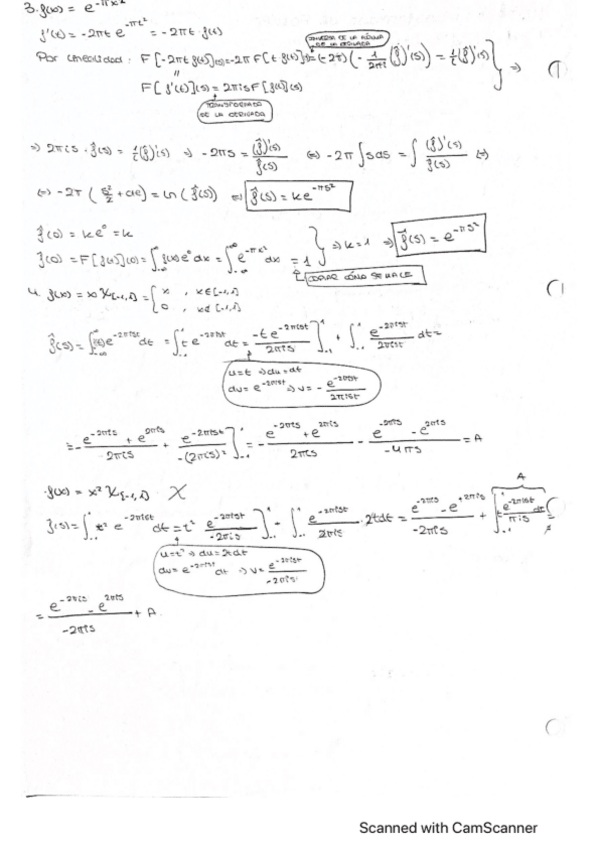 3. f(x) = e^{-πx²}
f'(t) = -2πt e^{-πt²} = -2πt · f(t)
Por linealidad: F[-2πt f(t)](s) = -2π F[t f(t)](s) = (-2π)(-1/(2πi) (f̂)'(s)) = 1/i (f̂)'(s) ⇒
F[f'(t)](s) = 2πis F[f(t)](s)
TRANSFORMADA DE LA DERIVADA
⇒ 2πis · f̂(s) = 1/i (f̂)'(s) ⇒ -2πs = (f̂)'(s)/f̂(s) ⇔ -2π ∫ s ds = ∫ (f̂)'(s)/f̂(s) ⇔
⇔ -2π (s²/2 + cte) = ln(f̂(s)) ⇒ f̂(s) = ke^{-πs²}
f̂(0) = ke⁰ = k
f̂(0) = F[f(x)](0) = ∫ f(x)e⁰dx = ∫ e^{-πx²}dx = 1 } ⇒ k = 1 ⇒ f̂(s) = e^{-πs²}
COPIAR CÓMO SE HACE
4. f(x) = x χ[-1,1) = { x , x∈[-1,1)
0 , x∉[-1,1)
f̂(s) = ∫ f(t)e^{-2πist} dt = ∫ t e^{-2πist} dt = -t e^{-2πist}/2πis ] + ∫ e^{-2πist}/2πist dt =
u = t ⇒ du = dt
dv = e^{-2πist} ⇒ v = - e^{-2πist}/2πist
= - (e^{-2πis} + e^{2πis})/2πis + e^{-2πist}/-(2πis)² ] = - (e^{-2πis} + e^{2πis})/2πis - (e^{-2πis} - e^{2πis})/-4πs = A
· f(x) = x² χ[-1,1) X
f̂(s) = ∫ t² e^{-2πist} dt = t² e^{-2πist}/-2πis ] - ∫ e^{-2πist}/2πis · 2t dt = (e^{-2πis} - e^{+2πis})/-2πis + ∫ t e^{-2πist}/πis dt =
A
u = t² ⇒ du = 2t dt
dv = e^{-2πist} dt ⇒ v = e^{-2πist}/-2πis
= (e^{-2πis} - e^{2πis})/-2πis + A
Scanned with CamScanner